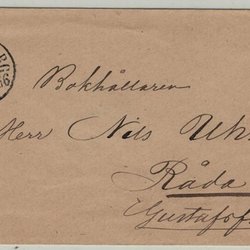 Bokhållaren
Herr Nils Uh
Råda
Gustafsf